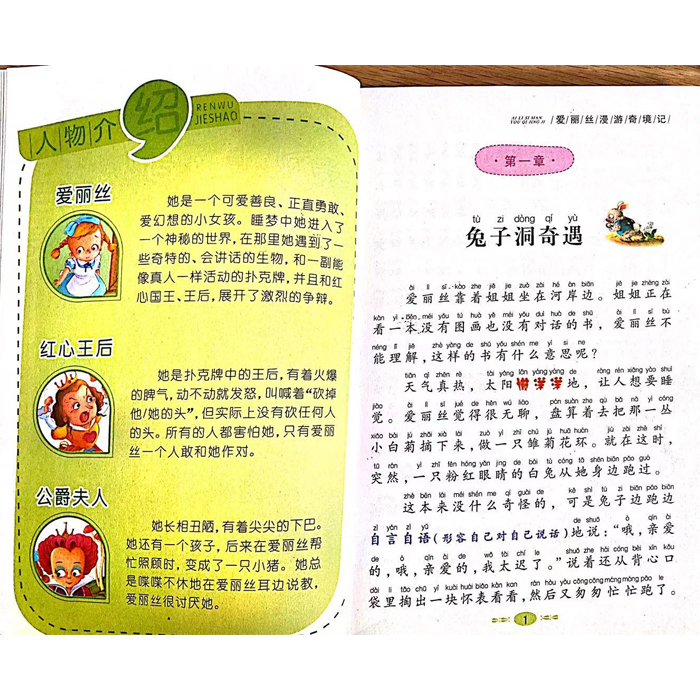 人物介绍
RENWU
JIESHAO
爱丽丝
她是一个可爱善良、正直勇敢、
爱幻想的小女孩。睡梦中她进入了
一个神秘的世界，在那里她遇到了一
些奇特的、会讲话的生物，和一副能
像真人一样活动的扑克牌，并且和红
心国王、王后，展开了激烈的争辩。
红心王后
她是扑克牌中的王后，有着火爆
的脾气，动不动就发怒，叫喊着“砍掉
他/她的头”，但实际上没有砍任何人
的头。所有的人都害怕她，只有爱丽
丝一个人敢和她作对。
公爵夫人
她长相丑陋，有着尖尖的下巴。
她还有一个孩子，后来在爱丽丝帮
忙照顾时，变成了一只小猪。她总
是喋喋不休地在爱丽丝耳边说教，
爱丽丝很讨厌她。
AI LI SI MAN
YOU QI JING JI
爱丽丝漫游奇境记
第一章
tù zi dòng qí yù
兔子洞奇遇
爱丽丝靠着姐姐坐在河岸边。姐姐正在
看一本没有图画也没有对话的书，爱丽丝不
能理解，这样的书有什么意思呢？
天气真热，太阳懒洋洋地，让人想要睡
觉。爱丽丝觉得很无聊，盘算着去把那一丛
小白菊摘下来，做一只雏菊花环。就在这时，
突然，一只粉红眼睛的白兔从她身边跑过。
这本来没什么奇怪的，可是兔子边跑边
自言自语(形容自己对自己说话)地说：“哦，亲爱
的，哦，亲爱的，我太迟了。”说着还从背心口
袋里掏出一块怀表看看，然后又匆匆忙忙跑了。
1